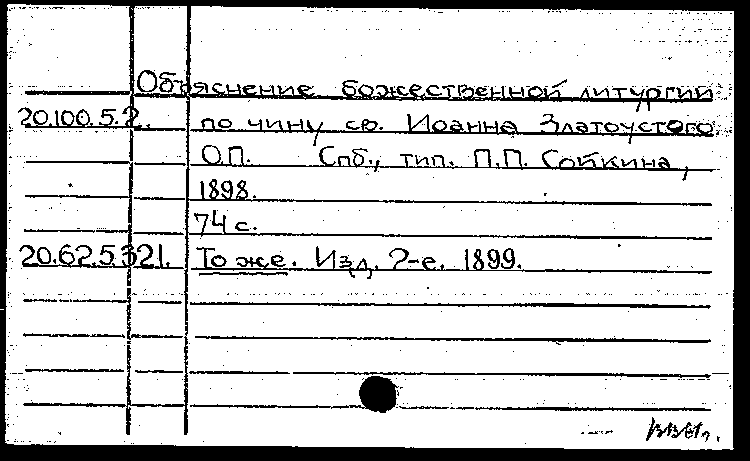 Объяснение божественной литургии
20.100.5.2. по чину св. Иоанна Златоустого.
О.П. Спб., тип. П.П. Сойкина,
1898.
74 с.
20.62.5.321. То же. Изд. 2-е. 1899.